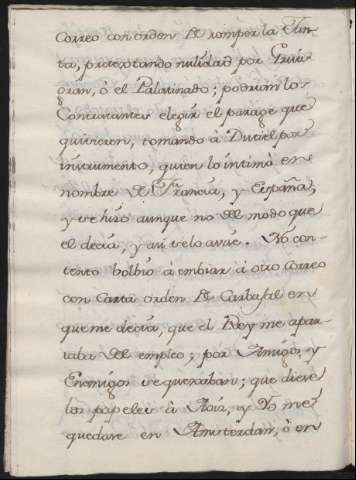 Correo con orden de romper la Jun-
ta, protextando nulidad por
ò el Palatinado; podrian los
Contratantes elegir el parage que
quisiesen, tomando à Duciel por
instrumento, quien lo intimò en
nombre de Francia, y España,
y se hizo aunque no del modo que
el decia, y asi se lo avise. No con-
tento bolbiò à embiar à otro Correo
con Carta orden de Carbajal en
que me decia, que el Rey me apar-
taba del empleo; por Amigos, y
Enemigos se quexaban; que diese
los papeles à, y Yo me
quedase en Amsterdan, ò en